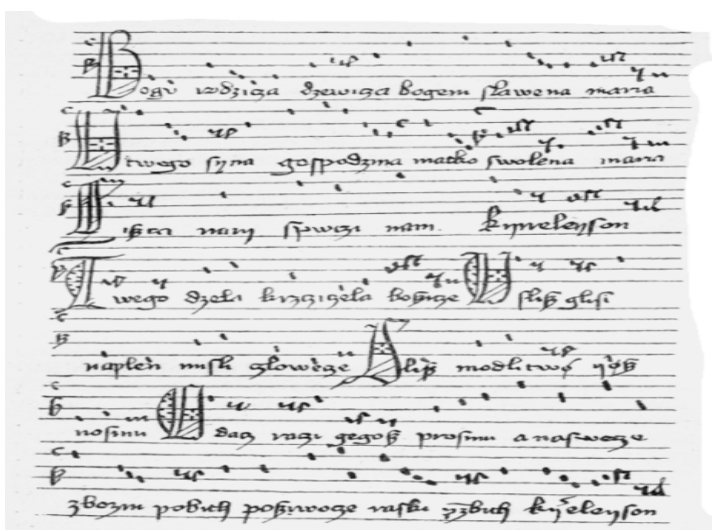 Bogu rodzicza dzewicza bogem slawena maria
U twego syna gospodzina matko swolena maria
Siszczi nam spwczi nam. Kyrieleyson
Twego dzela krzcziczela boszicze Uslisz glosi
naplen misli czlowecze Slisz modlitwo yosz
nosimi dacz raczi gegosz prosimi a naswecze
zbozni pobith posziwocze raski przebith kyrieleyson